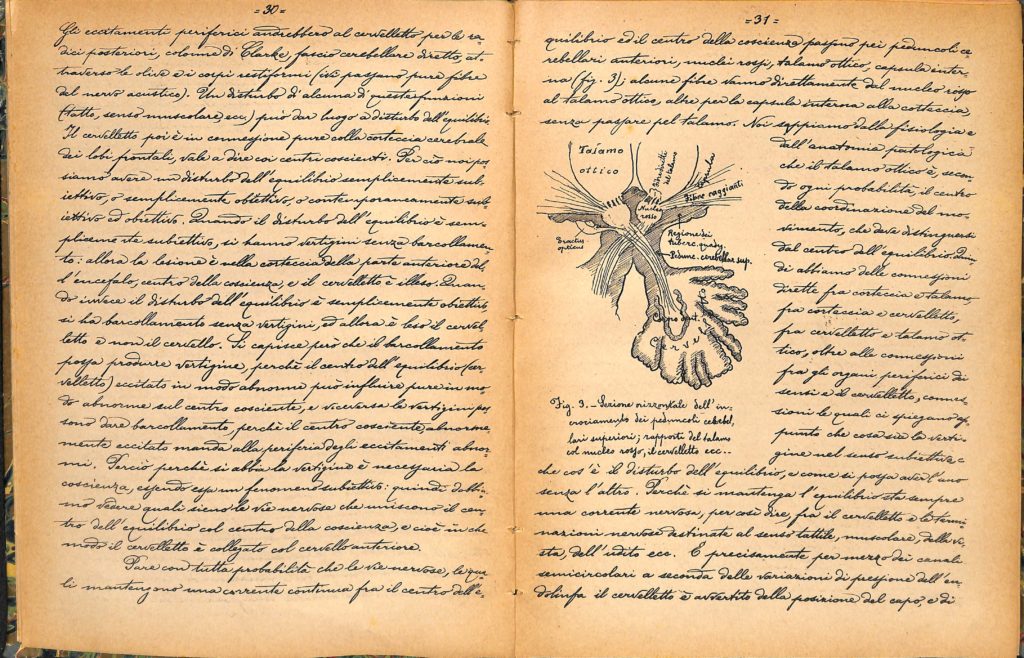 = 30 =
Gli eccitamenti periferici andrebbero al cervelletto per le ra-
dici posteriori, colonne di Clarke, fascio cerebellare diretto, at-
traverso le olive e i corpi restiformi (ivi passano pure fibre
del nervo acustico). Un disturbo d'alcuna di queste funzioni
(tatto, senso muscolare, ecc.) può dar luogo a disturbo dell'equilibrio.
Il cervelletto poi è in connessione pure colla corteccia cerebrale
dei lobi frontali, vale a dire coi centri coscienti. Per ciò noi pos-
siamo avere un disturbo dell'equilibrio semplicemente sub-
iettivo, o semplicemente obiettivo, o contemporaneamente sub-
iettivo ed obiettivo. Quando il disturbo dell'equilibrio è sem-
plicemente subiettivo, si hanno vertigini senza barcollamen-
to: allora la lesione è nella corteccia della parte anteriore del-
l'encefalo, centro della coscienza, e il cervelletto è illeso. Quan-
do invece il disturbo dell'equilibrio è semplicemente obiettivo,
si ha barcollamento senza vertigini, ed allora è leso il cervel-
letto e non il cervello. Si capisce però che il barcollamento
possa produrre vertigine, perchè il centro dell'equilibrio (cer-
velletto) eccitato in modo abnorme può influire pure in mo-
do abnorme sul centro cosciente, e viceversa le vertigini pos-
sono dare barcollamento, perchè il centro cosciente, abnorme-
mente eccitato manda alla periferia degli eccitamenti abnor-
mi. Perciò perchè si abbia la vertigine è necessaria la
coscienza, essendo essa un fenomeno subiettivo: quindi dobbia-
mo vedere quali sieno le vie nervose che uniscono il cen-
tro dell'equilibrio col centro della coscienza, e cioè in che
modo il cervelletto è collegato col cervello anteriore.
Pare con tutta probabilità che le vie nervose, le qua-
li mantengono una corrente continua fra il centro dell'e-
= 31 =
quilibrio ed il centro della coscienza passino pei peduncoli ce-
rebellari anteriori, nuclei rossi, talamo ottico, capsula inter-
na (fig. 3); alcune fibre vanno direttamente dal nucleo rosso
al talamo ottico, altre per la capsula interna alla corteccia,
senza passare pel talamo. Noi sappiamo dalla fisiologia e
dall'anatomia patologica
che il talamo ottico è, secon-
do ogni probabilità, il centro
della coordinazione del mo-
vimento, che deve distinguersi
dal centro dell'equilibrio. Quin-
di abbiamo delle connessioni
dirette fra corteccia e talamo
fra corteccia e cervelletto,
fra cervelletto e talamo ot-
tico, oltre alle connessioni
fra gli organi periferici di
senso e il cervelletto, connes-
sioni le quali ci spiegano ap-
punto che cosa sia la verti-
gine nel senso subiettivo e
Talamo
ottico
Peduncoli
del talamo
Fibre raggianti
Nucleo
rosso
Tractus
opticus
Regione dei
tuberc. quadr.
Pedunc. cerebellar. sup.
Corpo dent.
Cervelletto
Fig. 3. – Sezione orizzontale dell'in-
crociamento dei peduncoli cerebel-
lari superiori; rapporti del talamo
col nucleo rosso, il cervelletto ecc..
che cos'è il disturbo dell'equilibrio, e come si possa aver l'uno
senza l'altro. Perchè si mantenga l'equilibrio sta sempre
una corrente nervosa, per così dire, fra il cervelletto e le termi-
nazioni nervose destinate al senso tattile, muscolare, della vi-
sta, dell'udito ecc. È precisamente per mezzo dei canali
semicircolari a seconda delle variazioni di pressione dell'en-
dolinfa il cervelletto è avvertito della posizione del capo, e di